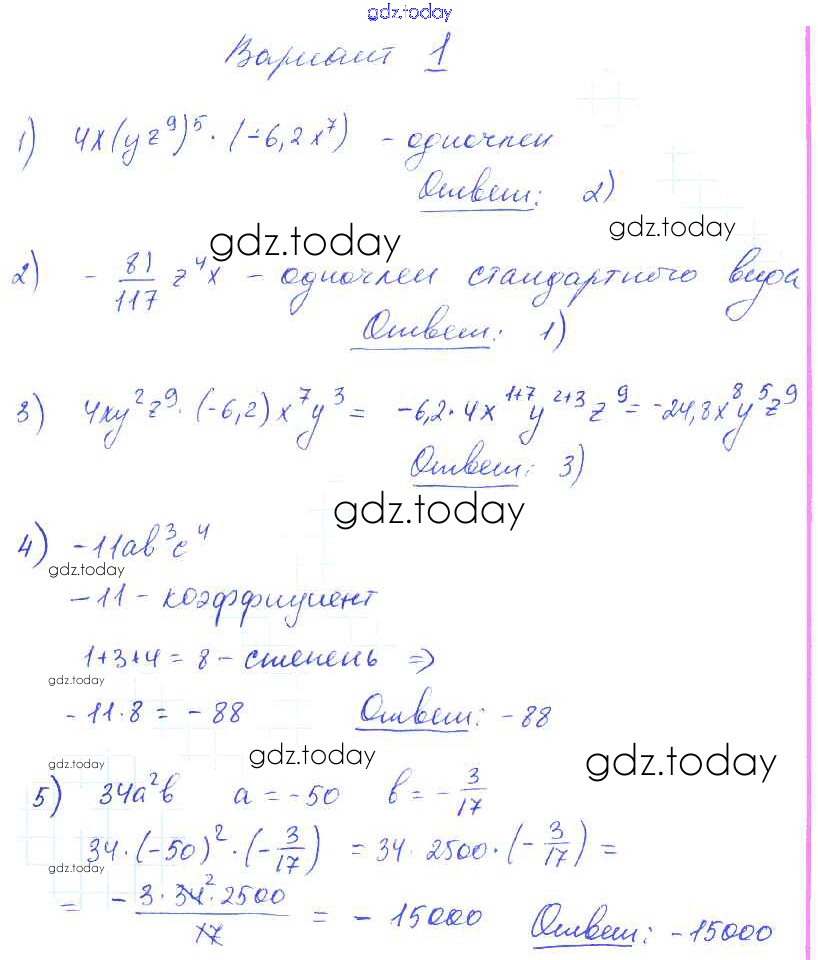 gdz.today
Вариант 1
1) 4x(yz⁹)⁵ · (-6,2x⁷) - одночлен
Ответ: 2)
gdz.today
gdz.today
2) - 81/117 z⁴x - одночлен стандартного вида
Ответ: 1)
3) 4xy²z⁹ · (-6,2)x⁷y³ = -6,2·4x¹⁺⁷y²⁺³z⁹ = -24,8x⁸y⁵z⁹
Ответ: 3)
gdz.today
4) -11ab³c⁴
gdz.today
-11 - коэффициент
1+3+4 = 8 - степень ⇒
gdz.today
-11·8 = -88 Ответ: -88
gdz.today
gdz.today
gdz.today
5) 34a²b a = -50 b = -3/17
34·(-50)²·(-3/17) = 34·2500·(-3/17) =
gdz.today
= -3·34²·2500/17 = -15000 Ответ: -15000